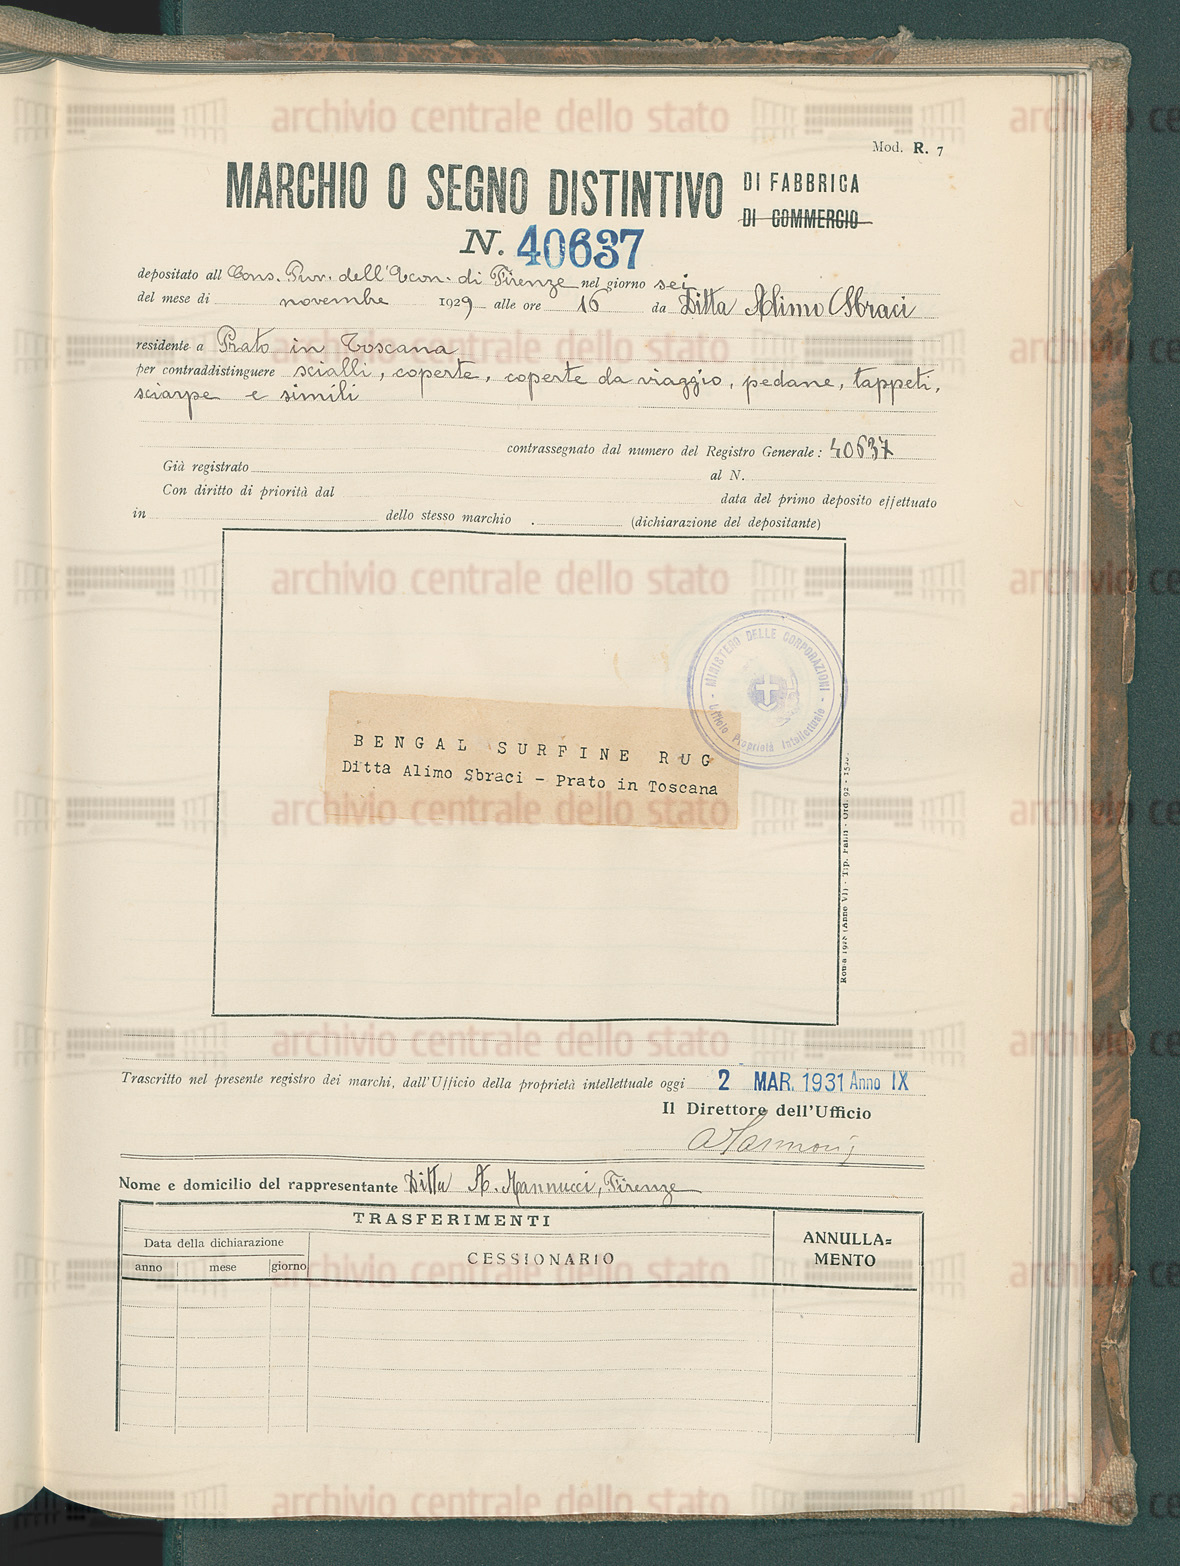 Mod. R. 7
MARCHIO O SEGNO DISTINTIVO DI FABBRICA
DI COMMERCIO
N. 40637
depositato all Cons. Prov. dell'Econ. di Firenze nel giorno sei
del mese di novembre 1929 alle ore 16 da Ditta Alimo Sbraci
residente a Prato in Toscana
per contraddistinguere scialli, coperte, coperte da viaggio, pedane, tappeti,
sciarpe e simili
contrassegnato dal numero del Registro Generale: 40637
Già registrato al N.
Con diritto di priorità dal data del primo deposito effettuato
in dello stesso marchio (dichiarazione del depositante)
MINISTERO DELLE CORPORAZIONI
Ufficio Proprietà Intellettuale
BENGAL SURFINE RUG
Ditta Alimo Sbraci - Prato in Toscana
Roma 1928 (Anno VI) - Tip. - Ord. 92
Trascritto nel presente registro dei marchi, dall'Ufficio della proprietà intellettuale oggi 2 MAR. 1931 Anno IX
Il Direttore dell'Ufficio
Nome e domicilio del rappresentante Ditta A. Mannucci, Firenze
TRASFERIMENTI
ANNULLA=
MENTO
Data della dichiarazione
CESSIONARIO
anno mese giorno
archivio centrale dello stato